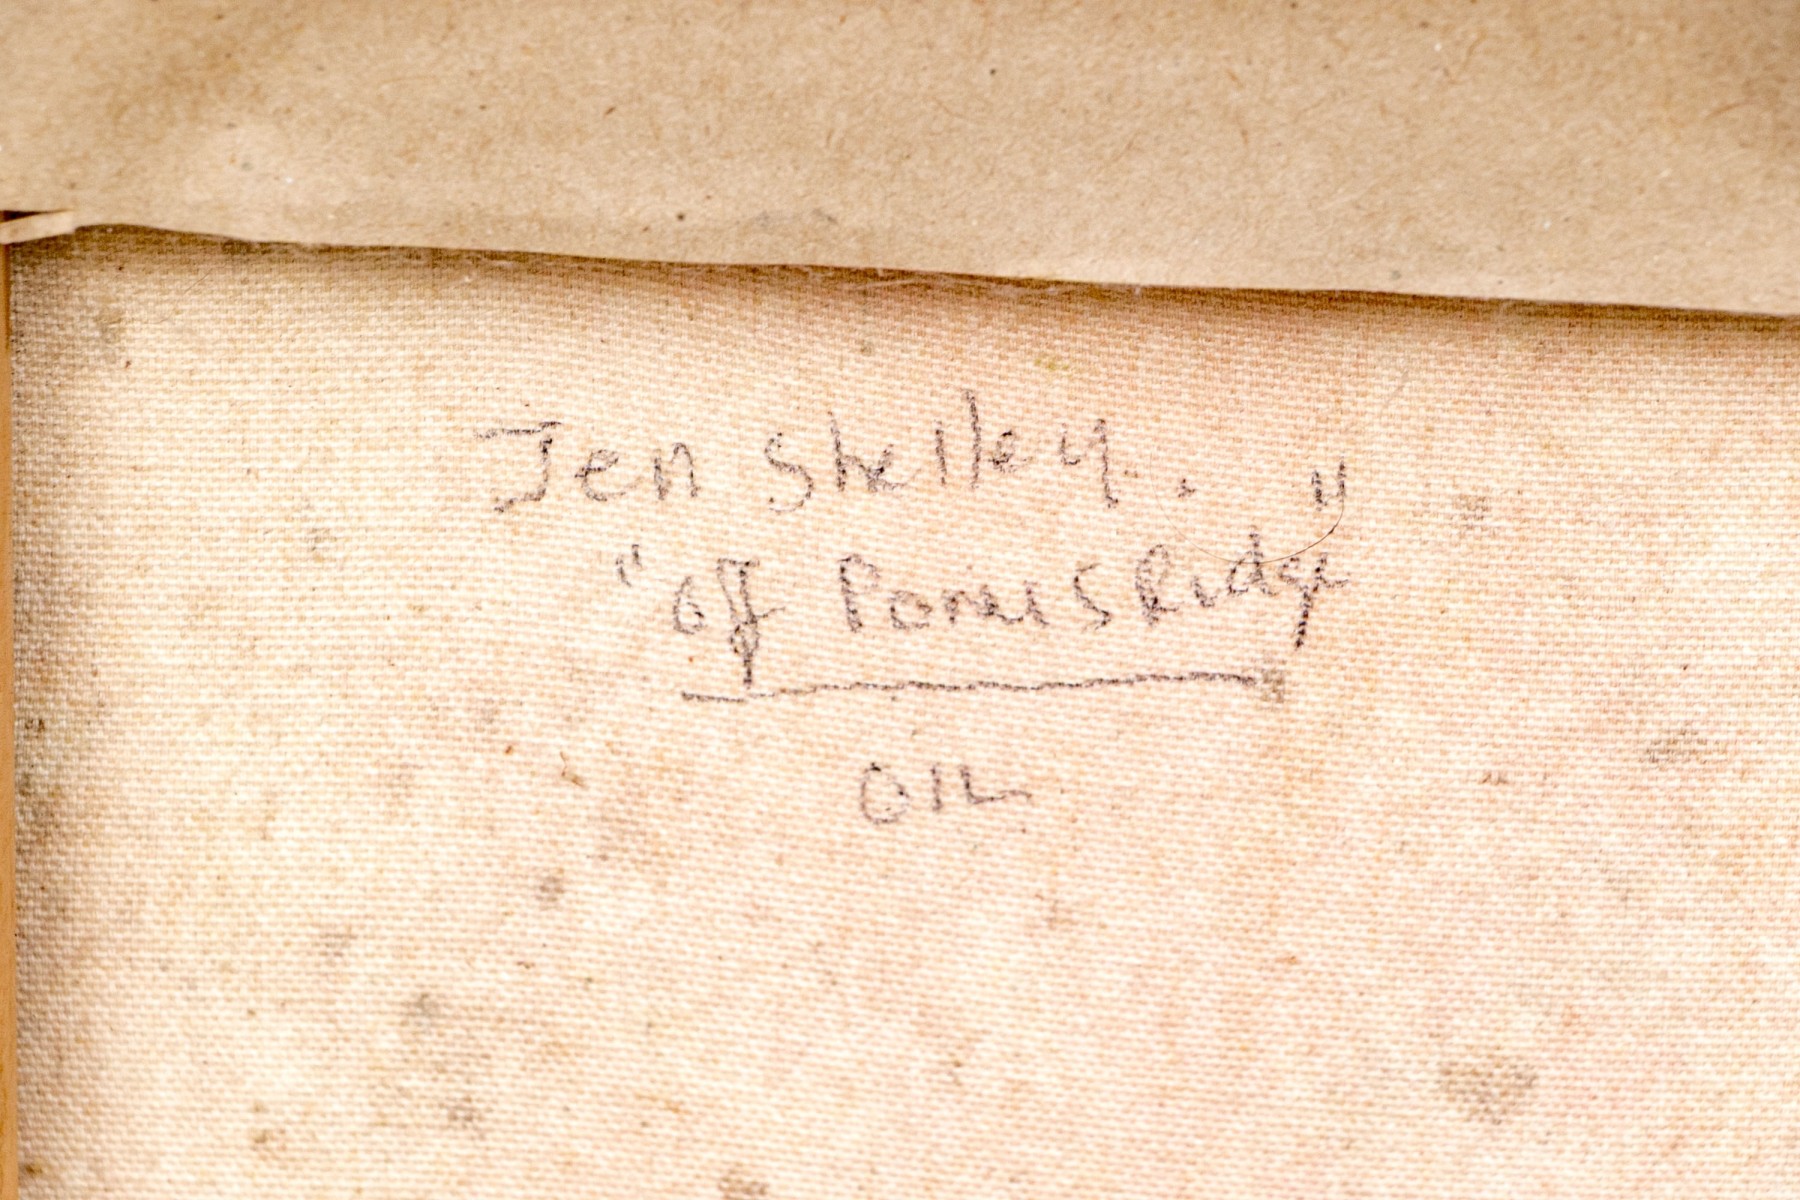 Jen Shelley.
"Off Ponus Ridge"
OIL